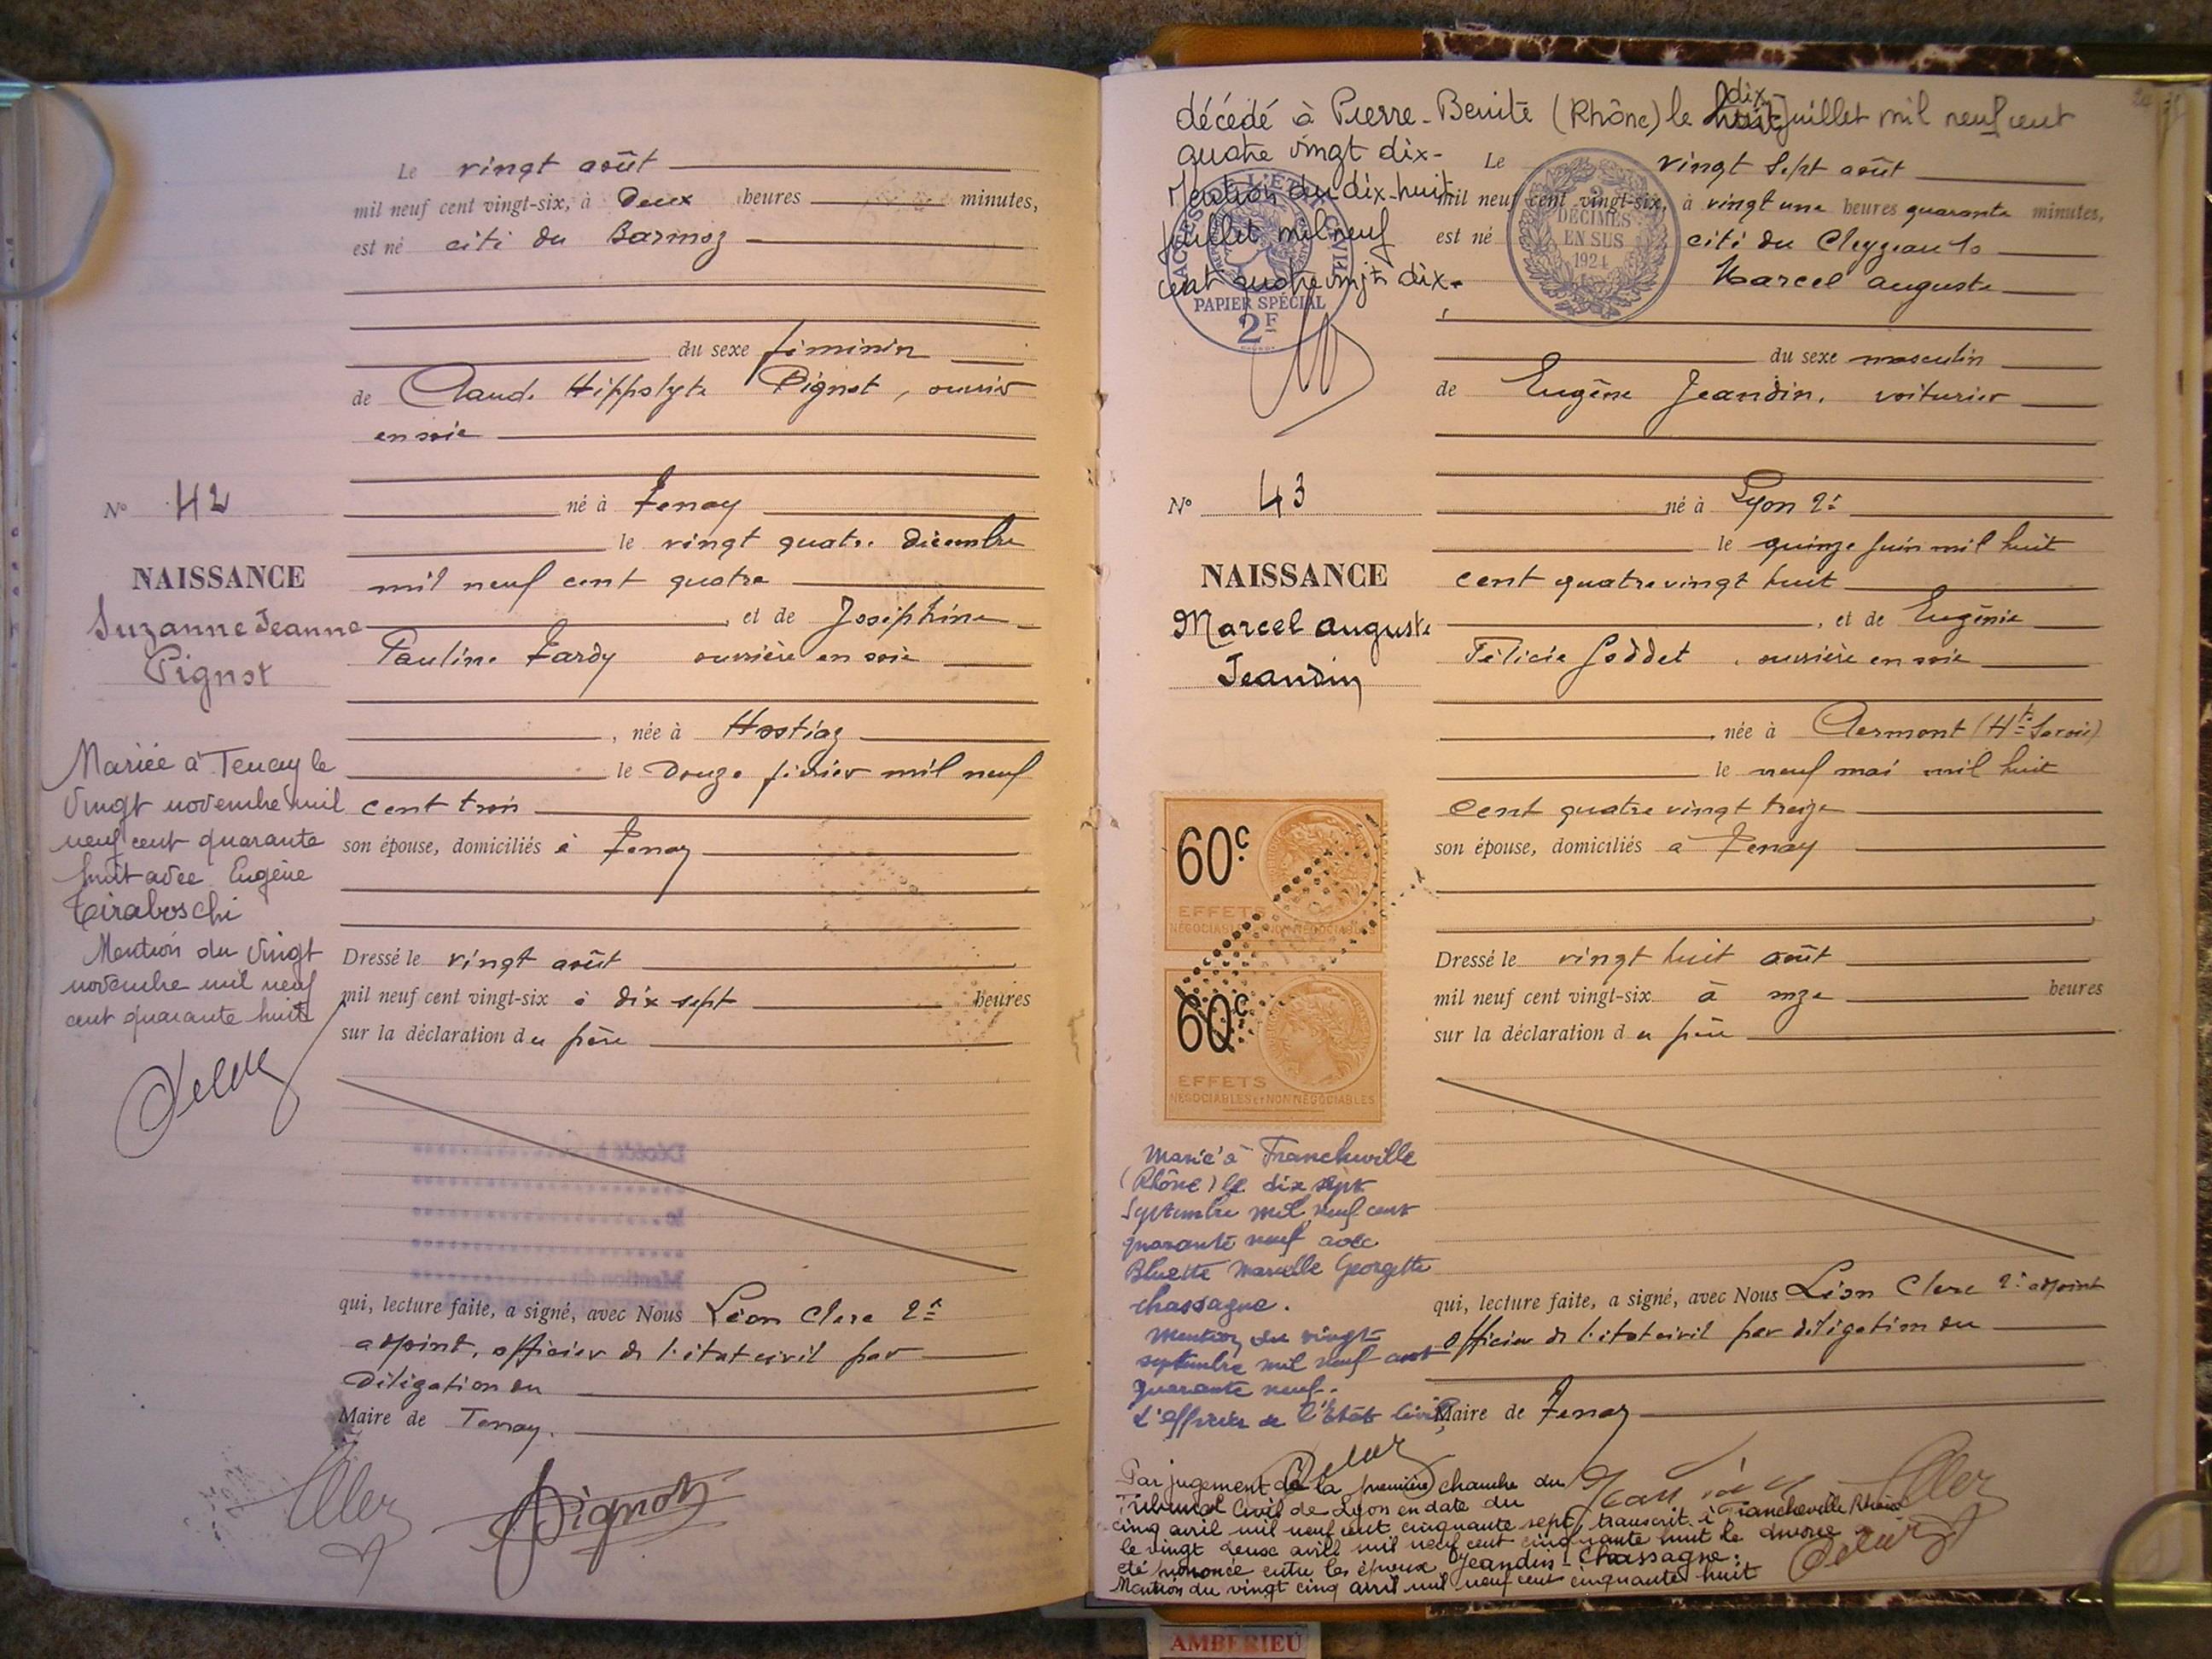 Le vingt août
mil neuf cent vingt-six, à Deux heures minutes,
est né cité du Barmoz
du sexe féminin
de Claude Hippolyte Pignot, ouvrier
en soie
né à Tenay
le vingt quatre décembre
mil neuf cent quatre
, et de Joséphine
Pauline Tardy ouvrière en soie
, née à Hostiaz
le Douze février mil neuf
cent trois
son épouse, domiciliés à Tenay
Dressé le vingt août
mil neuf cent vingt-six à dix sept heures
sur la déclaration du père
qui, lecture faite, a signé, avec Nous Léon Clerc 2e
adjoint, officier de l'état civil par
Délégation du
Maire de Tenay.
Pignot
N° 42
NAISSANCE
Suzanne Jeanne
Pignot
Mariée à Tenay le
vingt novembre mil
neuf cent quarante
huit avec Eugène
Tiraboschi
Mention du vingt
novembre mil neuf
cent quarante huit
décédé à Pierre-Benite (Rhône) le dix huit juillet mil neuf cent
quatre vingt dix-
Mention du dix-huit
juillet mil neuf
cent quatre vingt dix.
PAPIER SPÉCIAL
2F
2
DÉCIMES
EN SUS
1924
Le vingt sept août
mil neuf cent vingt-six, à vingt une heures quarante minutes,
est né cité du Cleyzeau 10
Marcel auguste
du sexe masculin
de Eugène Jeandin, voiturier
né à Lyon 2e
le quinze juin mil huit
cent quatre vingt huit
, et de Eugénie
Félicie Goddet, ouvrière en soie
, née à Clermont (Hte Savoie)
le neuf mai mil huit
cent quatre vingt treize
son épouse, domiciliés à Tenay
Dressé le vingt huit août
mil neuf cent vingt-six à onze heures
sur la déclaration du père
qui, lecture faite, a signé, avec Nous Léon Clerc 2e adjoint
officier de l'état civil par délégation du
Maire de Tenay
N° 43
NAISSANCE
Marcel auguste
Jeandin
60c
EFFETS
NÉGOCIABLES ET NON NÉGOCIABLES
60c
EFFETS
NÉGOCIABLES ET NON NÉGOCIABLES
Marié à Francheville
(Rhône) le dix sept
septembre mil neuf cent
quarante neuf avec
Bluette Marcelle Georgette
chassagne.
Mention du vingt
septembre mil neuf cent
quarante neuf.
L'officier de l'Etat Civil,
Par jugement de la première chambre du
Tribunal Civil de Lyon en date du
cinq avril mil neuf cent cinquante sept, transcrit à Francheville Rhône
le vingt deux avril mil neuf cent cinquante huit le divorce a
été prononcé entre les époux Jeandin-Chassagne.
Mention du vingt cinq avril mil neuf cent cinquante huit
AMBERIEU